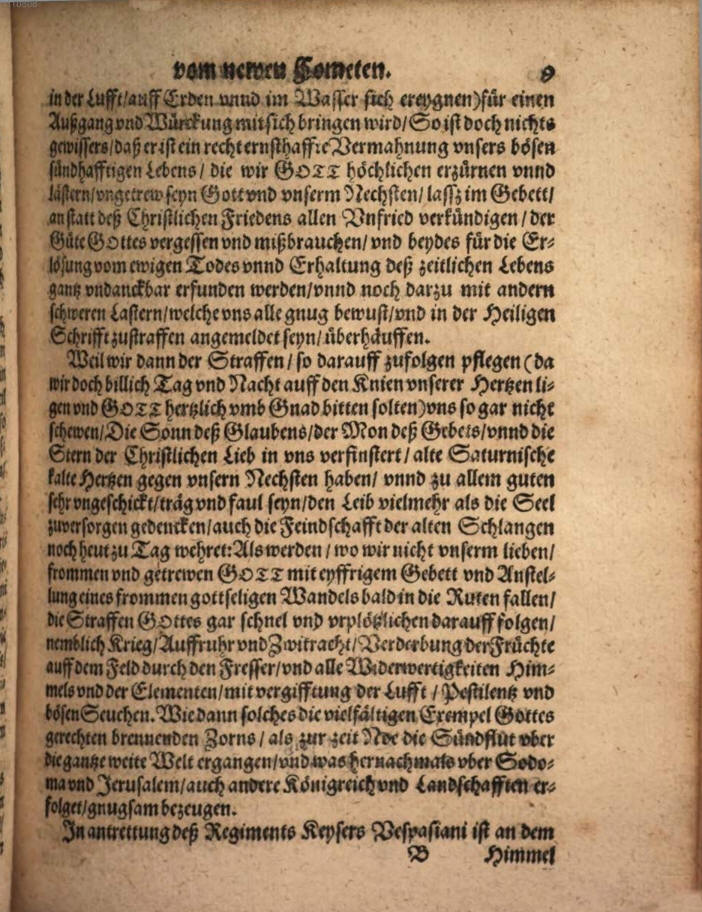 vom newen Cometen. 9
in der Lufft/auff Erden vnnd im Wasser sich ereygnen) für einen
Außgang vnd Würckung mit sich bringen wird/So ist doch nichts
gewissers/daß er ist ein recht ernsthaffte Vermahnung vnsers bösen
sündhafftigen Lebens/ die wir GOTT höchlichen erzürnen vnnd
lästern/vngetrew seyn Gott vnd vnserm Nechsten/ lassz im Gebett/
an statt deß Christlichen Friedens allen Vnfried verkündigen/ der
Güte GOttes vergessen vnd mißbrauchen/ vnd beydes für die Er-
lösung vom ewigen Todes vnnd Erhaltung deß zeitlichen Lebens
gantz vndanckbar erfunden werden/vnnd noch darzu mit andern
schweren Lastern/welche vns alle gnug bewust/vnd in der Heiligen
Schrifft zustraffen angemeldet seyn/überhäuffen.
Weil wir dann der Straffen/ so darauff zufolgen pflegen (da
wir doch billich Tag vnd Nacht auff den Knien vnserer Hertzen li-
gen vnd GOTT hertzlich vmb Gnad bitten solten) vns so gar nicht
schewen/Die Sonn deß Glaubens/der Mon deß Gebets/vnnd die
Stern der Christlichen Lieb in vns verfinstert/ alte Saturnische
kalte Hertzen gegen vnsern Nechsten haben/ vnnd zu allem guten
sehr vngeschickt/träg vnd faul seyn/den Leib vielmehr als die Seel
zuversorgen gedencken/auch die Feindschafft der alten Schlangen
noch heut zu Tag wehret: Als werden/ wo wir nicht vnserm lieben/
frommen vnd getrewen GOTT mit eyffrigem Gebett vnd Anstel-
lung eines frommen gottseligen Wandels bald in die Ruten fallen/
die Straffen GOttes gar schnel vnd vrplötzlichen darauff folgen/
nemblich Krieg/Auffruhr vnd Zwitracht/Verderbung der Früchte
auff dem Feld durch den Fresser/vnd alle Widerwertigkeiten Him-
mels vnd der Elementen/mit vergifftung der Lufft/ Pestilentz vnd
bösen Seuchen. Wie dann solches die vielfältigen Exempel Gottes
gerechten brennenden Zorns/ als zur zeit Noe die Sündflut vber
die gantze weite Welt ergangen/vnd was hernachmals vber Sodo-
ma vnd Jerusalem/auch andere Königreich vnd Landschafften er-
folget/gnugsam bezeugen.
In antrettung deß Regiments Keysers Vespasiani ist an dem
B Himmel